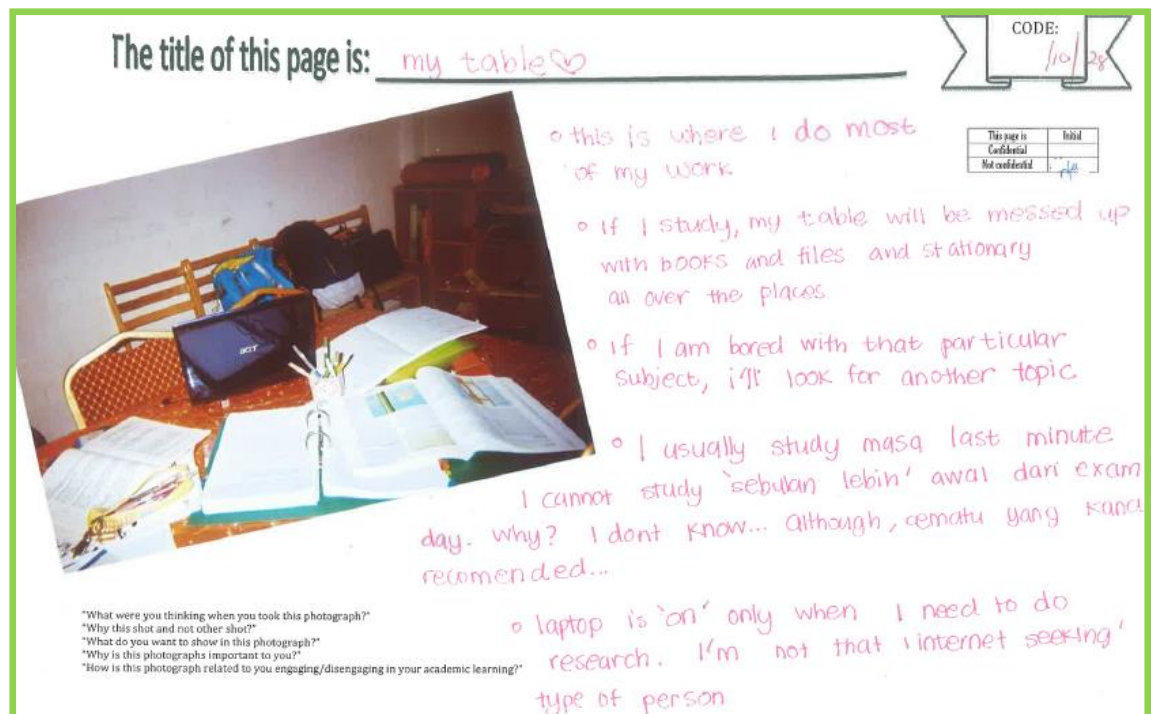 The title of this page is: my table♡
CODE:
/10/28
This page is Initial
Confidential
Not confidential
◦ this is where I do most
of my work
◦ If I study, my table will be messed up
with books and files and stationary
all over the places
◦ If I am bored with that particular
subject, i'll look for another topic
acer
◦ I usually study masa last minute
I cannot study 'sebulan lebih' awal dari exam
day. Why? I dont know... although, cematu yang kana
recomended...
◦ laptop is 'on' only when I need to do
research. I'm not that 'internet seeking'
type of person
"What were you thinking when you took this photograph?"
"Why this shot and not other shot?"
"What do you want to show in this photograph?"
"Why is this photographs important to you?"
"How is this photograph related to you engaging/disengaging in your academic learning?"